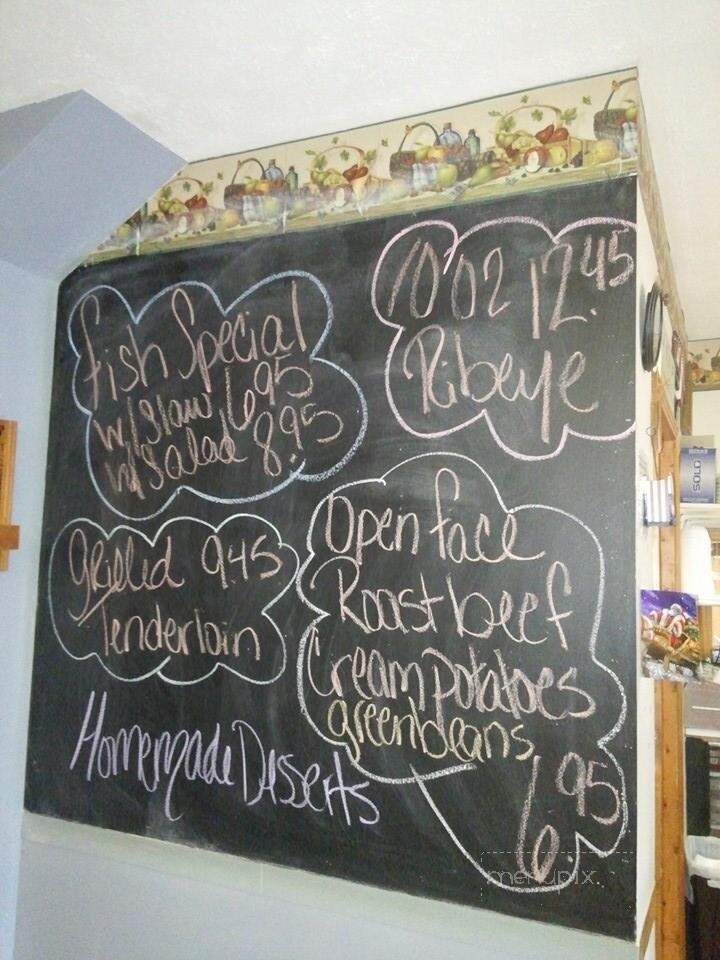 Fish Special
w/slaw 6.95
w/Salad 8.95
10 oz 12.45
Ribeye
Grilled 9.45
Tenderloin
Open face
Roast beef
Cream potatoes
greenbeans
6.95
Homemade Desserts
SOLO
menupix